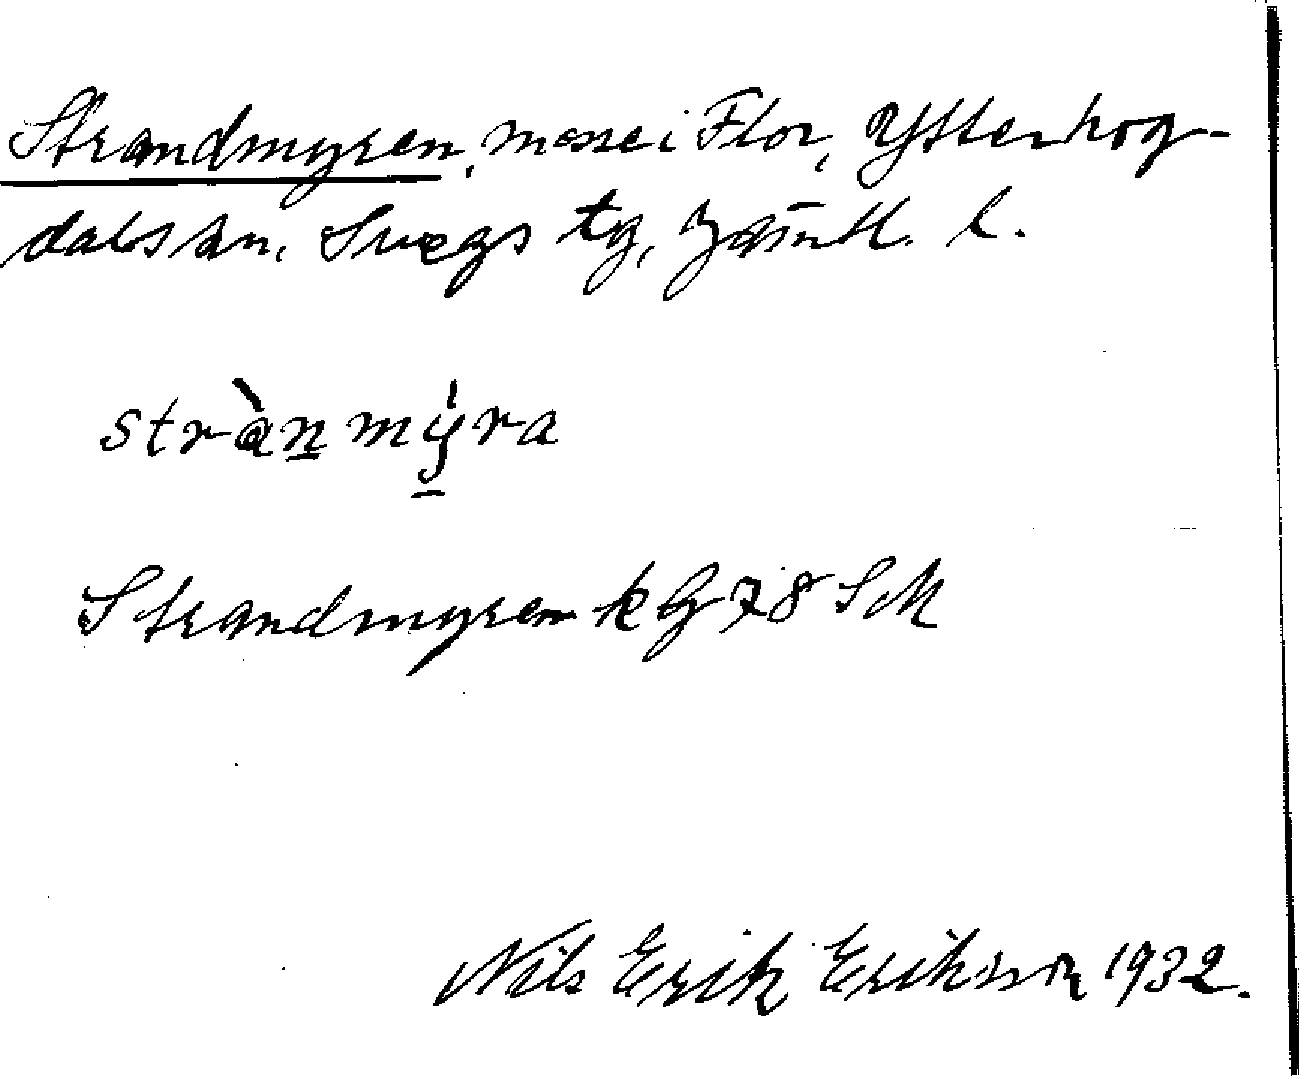 Strandmyren, mosse i Flor, Ytterhog-
dals sn, Svegs tg, Jämtl. l.
strànmy̍ra
Strandmyren k G 78 SM
Nils Erik Eriksson 1932.